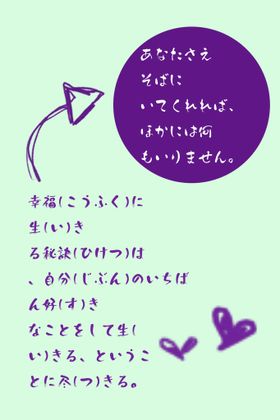 あなたさえ
そばに
いてくれれば、
ほかには何
もいりません。
幸福(こうふく)に
生(い)き
る秘訣(ひけつ)は
、自分(じぶん)のいちば
ん好(す)き
なことをして生(
い)きる、というこ
とに尽(つ)きる。